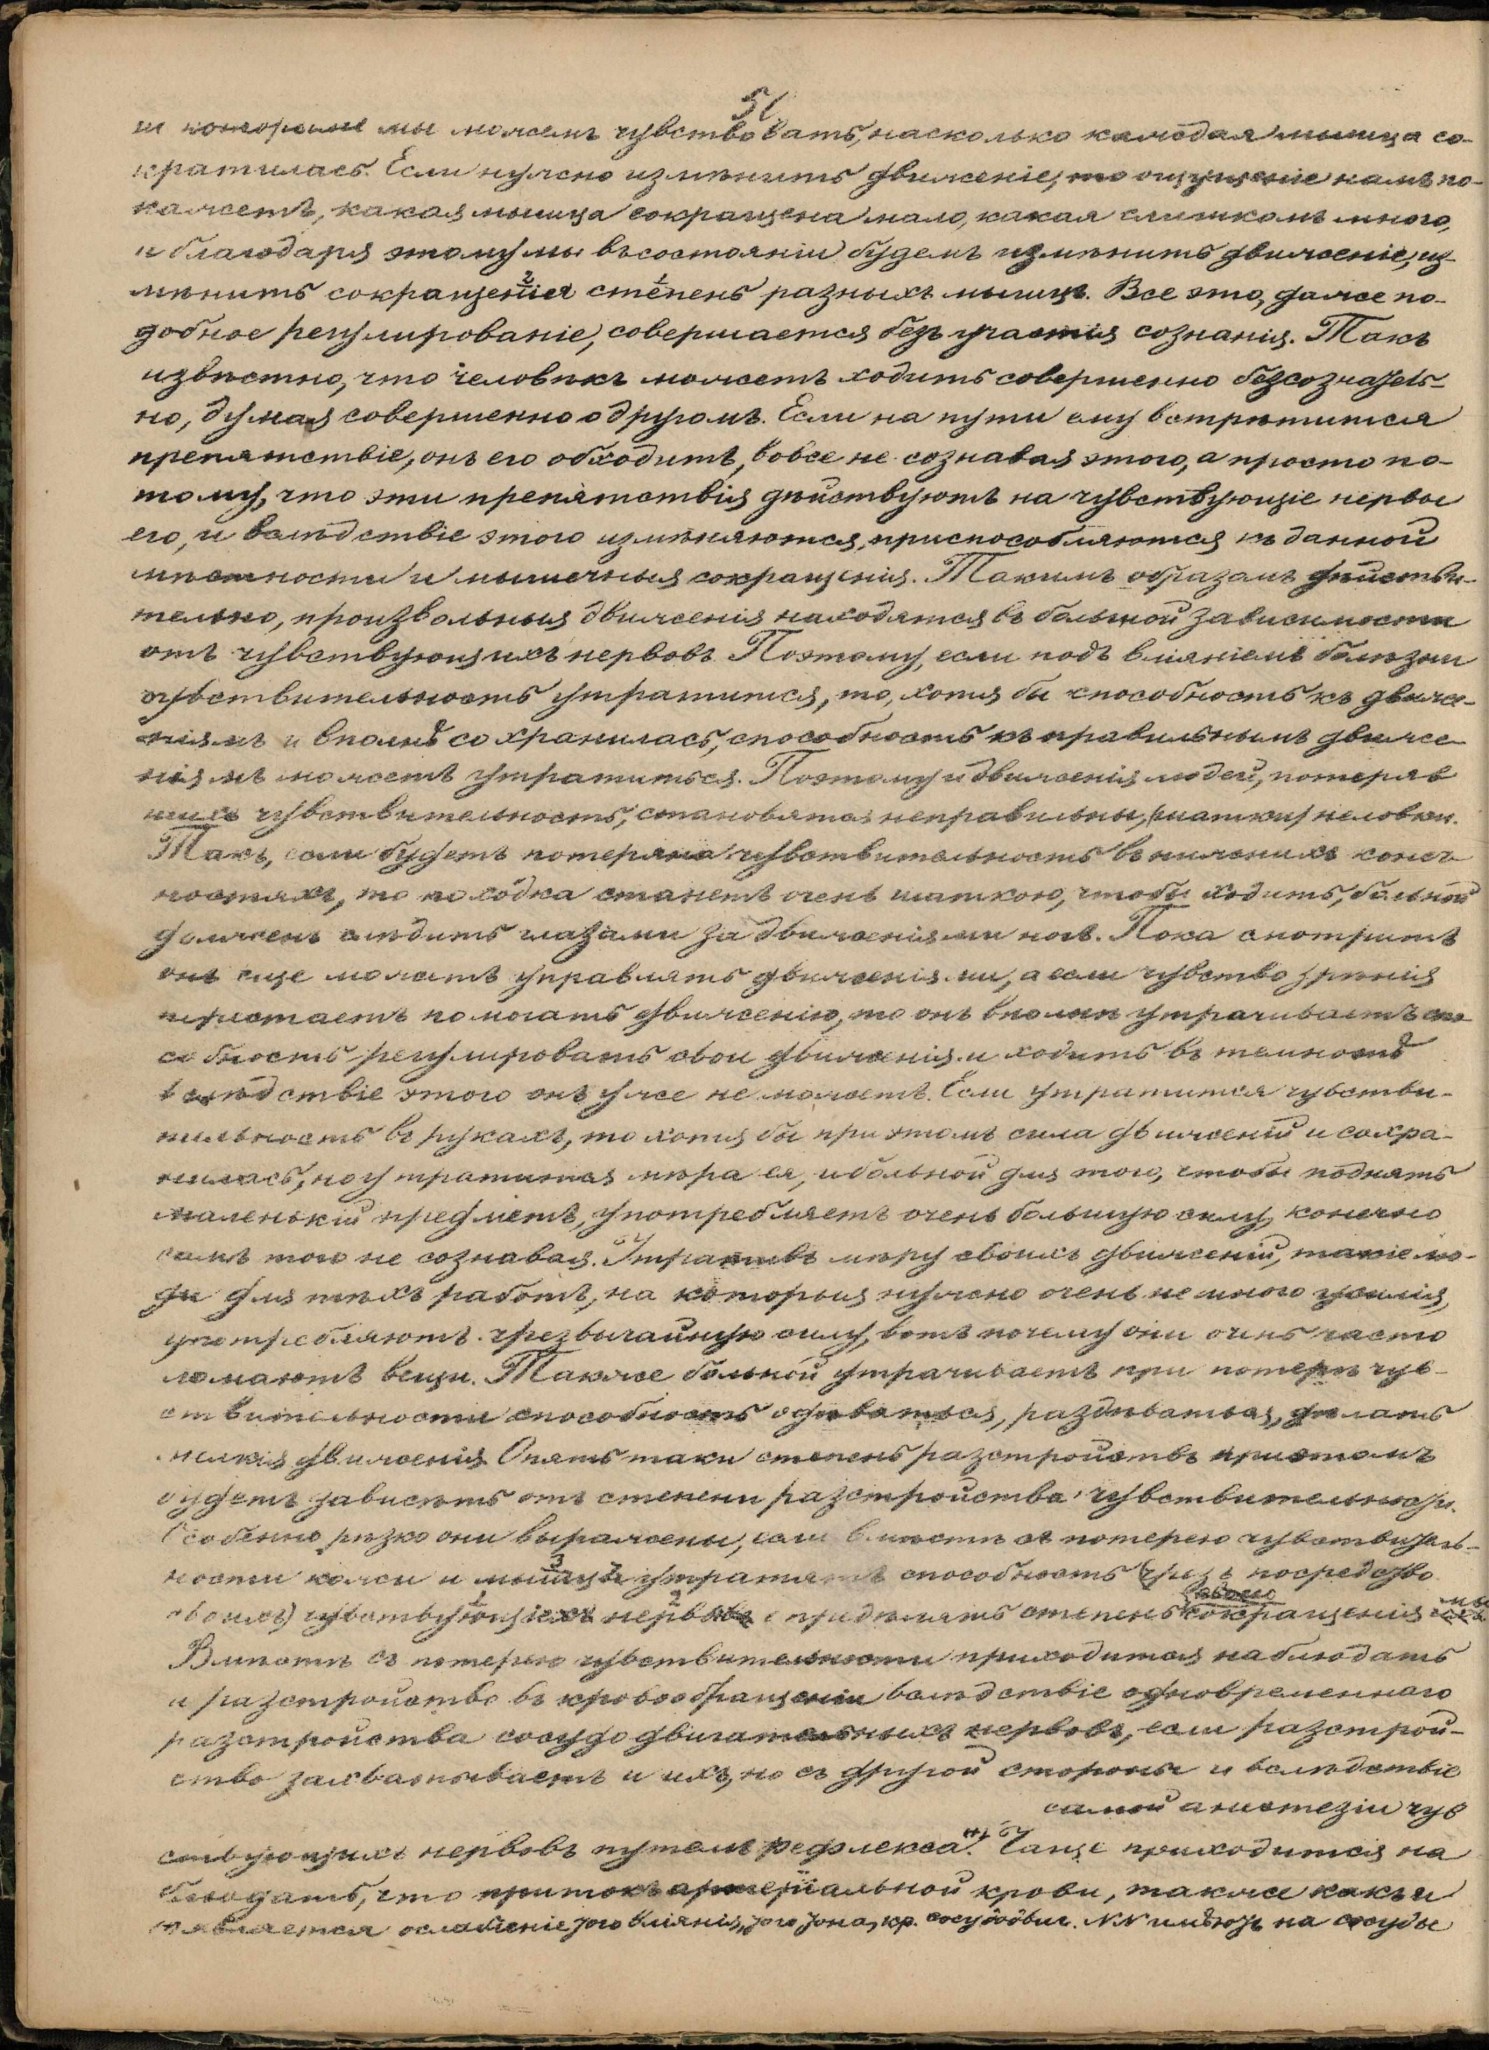 51
и которыми мы можемъ чувствовать, насколько каждая мышца со-
кратилась. Если нужно измѣнить движеніе, то ощущеніе намъ по-
кажетъ, какая мышца сокращена мало, какая слишкомъ много,
и благодаря этому мы въ состояніи будемъ измѣнить движеніе, из-
мѣнить сокращенія степень разныхъ мышцъ. Все это, даже по-
добное регулированіе, совершается безъ участія сознанія. Такъ
извѣстно, что человѣкъ можетъ ходить совершенно безсознатель-
но, думая совершенно о другомъ. Если на пути ему встрѣтится
препятствіе, онъ его обходитъ, вовсе не сознавая этого, а просто по-
тому, что эти препятствія дѣйствуютъ на чувствующіе нервы
его, и вслѣдствіе этого измѣняются, приспособляются къ данной
мѣстности и мышечныя сокращенія. Такимъ образомъ дѣйстви-
тельно, произвольныя движенія находятся въ большой зависимости
отъ чувствующихъ нервовъ. Поэтому, если подъ вліяніемъ болѣзни
чувствительность утратится, то, хотя бы способность къ движе-
ніямъ и вполнѣ сохранилась, способность къ правильнымъ движе-
ніямъ можетъ утратиться. Поэтому и движенія людей, потеряв
шихъ чувствительность, становятся неправильны, шатки, неловки.
Такъ, если будетъ потеряна чувствительность въ нижнихъ конеч
ностяхъ, то походка станетъ очень шаткою, чтобы ходить, больной
долженъ слѣдить глазами за движеніями ногъ. Пока смотритъ
онъ еще можетъ управлять движеніями, а если чувство зрѣнія
перестаетъ помогать движенію, то онъ вполнѣ утрачиваетъ спо
собность регулировать свои движенія и ходить въ темнотѣ
вслѣдствіе этого онъ уже не можетъ. Если утратится чувстви-
тельность въ рукахъ, то хотя бы при этомъ сила движеній и сохра-
нилась, но утратится мѣра ея, и больной для того, чтобы поднять
маленькій предметъ, употребляетъ очень большую силу, конечно
самъ того не сознавая. Утративъ мѣру своихъ движеній, такіе лю-
ди для тѣхъ работъ, на которыя нужно очень немного усилія,
употребляютъ чрезвычайную силу, вотъ почему они очень часто
ломаютъ вещи. Также больной утрачиваетъ при потерѣ чув-
ствительности способность одѣваться, раздѣваться, дѣлать
мелкія движенія. Опять таки степень разстройствъ при этомъ
будетъ зависѣть отъ степени разстройства чувствительности.
Особенно рѣзко они выражены, если вмѣстѣ съ потерею чувствитель-
ности кожи и мышцы утратятъ способность (чрезъ посредство
своихъ) чувствующихъ нервовъ опредѣлять степень своего сокращенія
Вмѣстѣ съ потерею чувствительности приходится наблюдать
и разстройство въ кровообращеніи вслѣдствіе одновременнаго
разстройства сосудодвигательныхъ нервовъ, если разстрой-
ство захватываетъ и ихъ, но съ другой стороны и вслѣдствіе
самой анестезіи чув
ствующихъ нервовъ путемъ рефлекса. Чаще приходится на
блюдать, что притокъ артеріальной крови, также какъ и
является ослабленіе того вліянія, того тона, кр. сосудодвиг. NN имѣютъ на сосуды